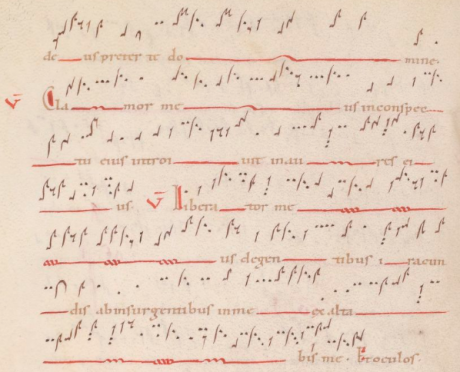 de us preter te do mine.
V Cla mor me us in conspec
tu eius introi uit in au res ei
us V Libera tor me
us de gen tibus i racun
dis ab insurgentibus in me exalta
bis me. Pr oculos.